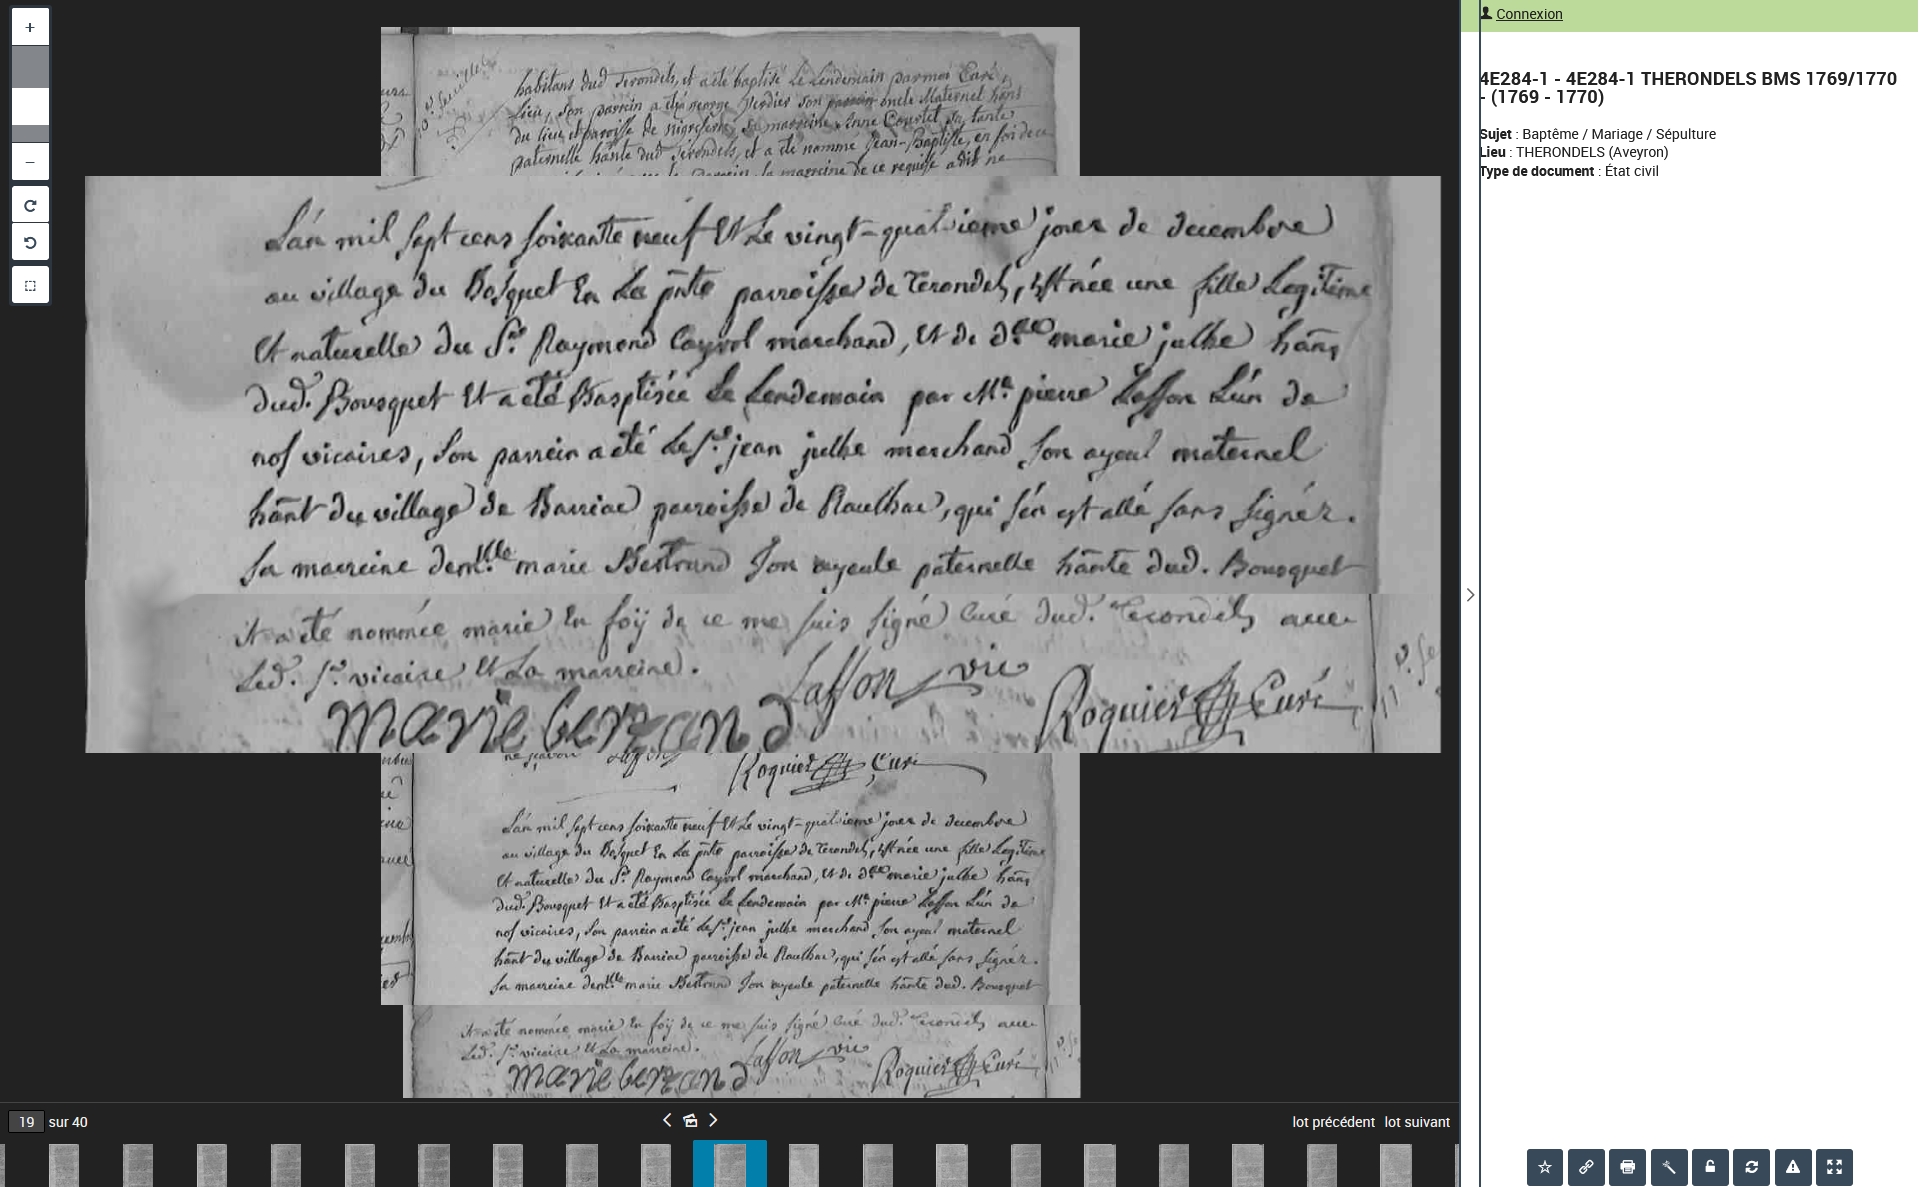 Connexion
4E284-1 - 4E284-1 THERONDELS BMS 1769/1770
- (1769 - 1770)
Sujet : Baptême / Mariage / Sépulture
Lieu : THERONDELS (Aveyron)
Type de document : État civil
habitans dud Terondels, et a été baptisé Le Lendemain par moi Curé
Lieu, son parrein a été george Verdier son oncle Maternel hant
du lieu et paroisse de nigreserre, sa marreine Anne Courtet sa tante
paternelle hante dud Terondels, et a été nommé Jean-Baptiste, en foi de ce
parrein la marreine de ce requise a dit ne
L'an mil sept cens soixante neuf Et Le vingt-quatrieme jour de decembre
au village du Bosquet En La pnte parroisse de Terondels, Est née une fille Legitime
Et naturelle du Sr. Raymond Cayrol marchand, Et de dlle marie julhe hans
dud. Bousquet Et a été Baptisée Le Lendemain par Mr. pierre Laffon L'un de
nos vicaires, Son parrein a été Le Sr. jean julhe marchand Son ayeul maternel
hant du village de Barriac parroisse de Raulhac, qui s'en est allé sans signer.
Sa marreine demlle marie Bertrand Son ayeule paternelle hante dud. Bousquet
Et a été nommée marie En foÿ de ce me suis signé Curé dud. Terondels avec
Led. Sr. vicaire Et La marreine.
Laffon vic
Roquier Curé
marie bertrand
ne sçavoir Laffon
Roquier Curé
L'an mil sept cens soixante neuf Et Le vingt-quatrieme jour de decembre
au village du Bosquet En La pnte parroisse de Terondels, Est née une fille Legitime
Et naturelle du Sr. Raymond Cayrol marchand, Et de dlle marie julhe hans
dud. Bousquet Et a été Baptisée Le Lendemain par Mr. pierre Laffon L'un de
nos vicaires, Son parrein a été Le Sr. jean julhe marchand Son ayeul maternel
hant du village de Barriac parroisse de Raulhac, qui s'en est allé sans signer.
Sa marreine demlle marie Bertrand Son ayeule paternelle hante dud. Bousquet
Et a été nommée marie En foÿ de ce me suis signé Curé dud. Terondels avec
Led. Sr. vicaire Et La marreine.
Laffon vic
Roquier Curé
marie bertrand
19 sur 40
lot précédent lot suivant